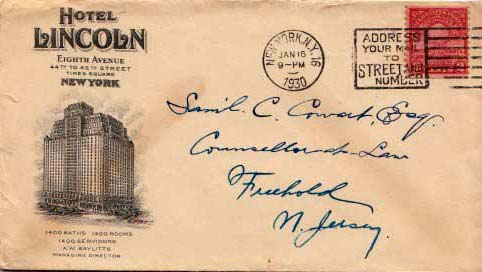 HOTEL
LINCOLN
EIGHTH AVENUE
44TH TO 45TH STREET
TIMES SQUARE
NEW YORK
NEW YORK, N.Y. 16
JAN 16
9-PM
1930
ADDRESS
YOUR MAIL
TO
STREET AND
NUMBER
Saml. C. Cowart, Esq.
Counsellor-at-Law
Freehold
N. Jersey.
1400 BATHS 1400 ROOMS
1400 SERVIDORS
A.W. BAYLITTS
MANAGING DIRECTOR